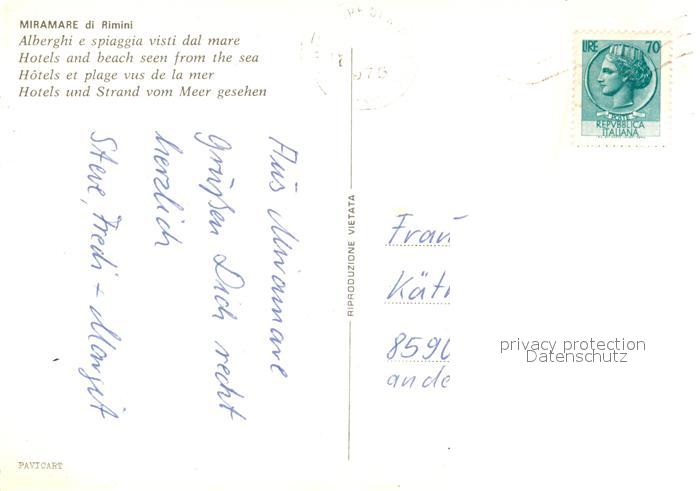 MIRAMARE di Rimini
Alberghi e spiaggia visti dal mare
Hotels and beach seen from the sea
Hôtels et plage vus de la mer
Hotels und Strand vom Meer gesehen
LIRE 70
POSTE
REPVBBLICA
ITALIANA
Aus Miramare
grüßen Dich recht
herzlich
Steve, Fredi + Margit
RIPRODUZIONE VIETATA
Frau
Kät
859
an de
privacy protection
Datenschutz
PAVICART